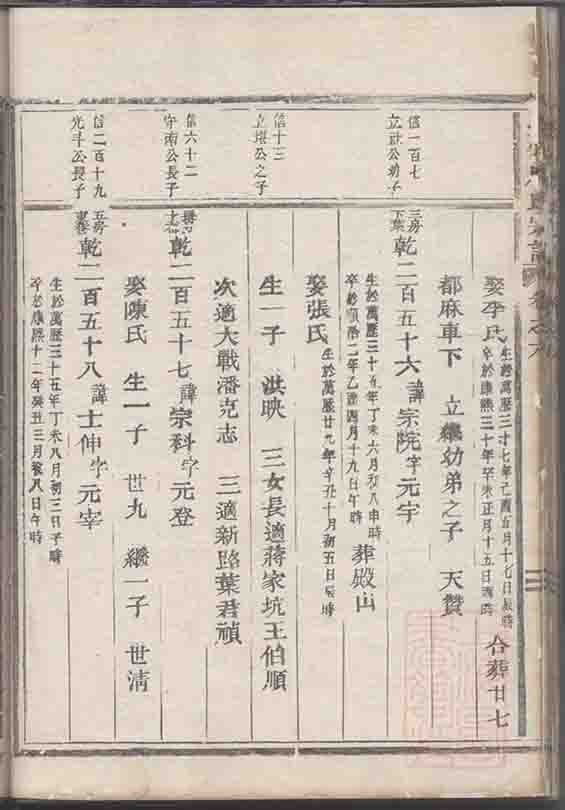 娶李氏 生於萬歷三十七年己酉五月十七日辰時 卒於康熙三十年辛未正月十五日酉時 合葬廿七
都麻車下 立繼幼弟之子 天贊
信一百七 立政公幼子 三房下葉 乾二百五十六諱宗院字元宇
生於萬歷三十五年丁未六月初八申時 卒於順治二年乙酉四月十九日午時 葬殿山
娶張氏 生於萬歷廿九年辛丑十月初五日辰時
信十三 立堪公之子 生一子 洪映 三女長適蔣家坑王伯順
次適大戰潘克志 三適新路葉君禎
信六十二 守南公長子 乾二百五十七諱宗科字元登
娶陳氏 生一子 世九 繼一子 世淸
信二百十九 光斗公長子 五房 乾二百五十八諱士伸字元宰
生於萬歷三十五年丁未八月初三日子時
卒於康熙十二年癸丑三月初八日午時